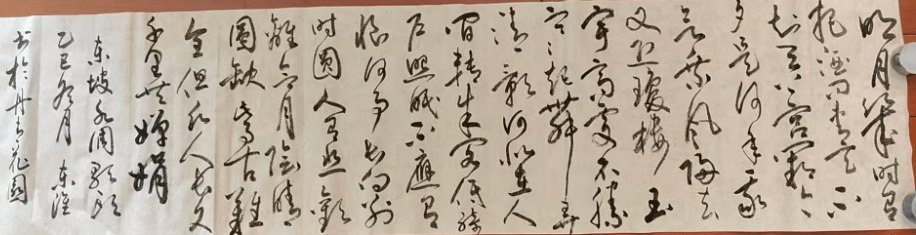 明月幾时有
把酒问青天不
知天上宫闕今
夕是何年我
欲乘风归去
又恐瓊楼玉
宇高處不勝
寒起舞弄
清影何似在人
间轉朱阁低绮
户照眠不應有
恨何事长向别
时圓人有悲歡
離合月陰晴
圓缺此事古難
全但願人长久
千里共嬋娟
东坡水调歌头
乙巳冬月 东
书於丹花園